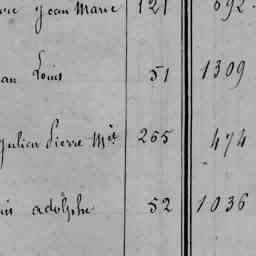 Jean Marie 121 692
Louis 51 1309
Julien Pierre Mie 265 474
adolphe 52 1036